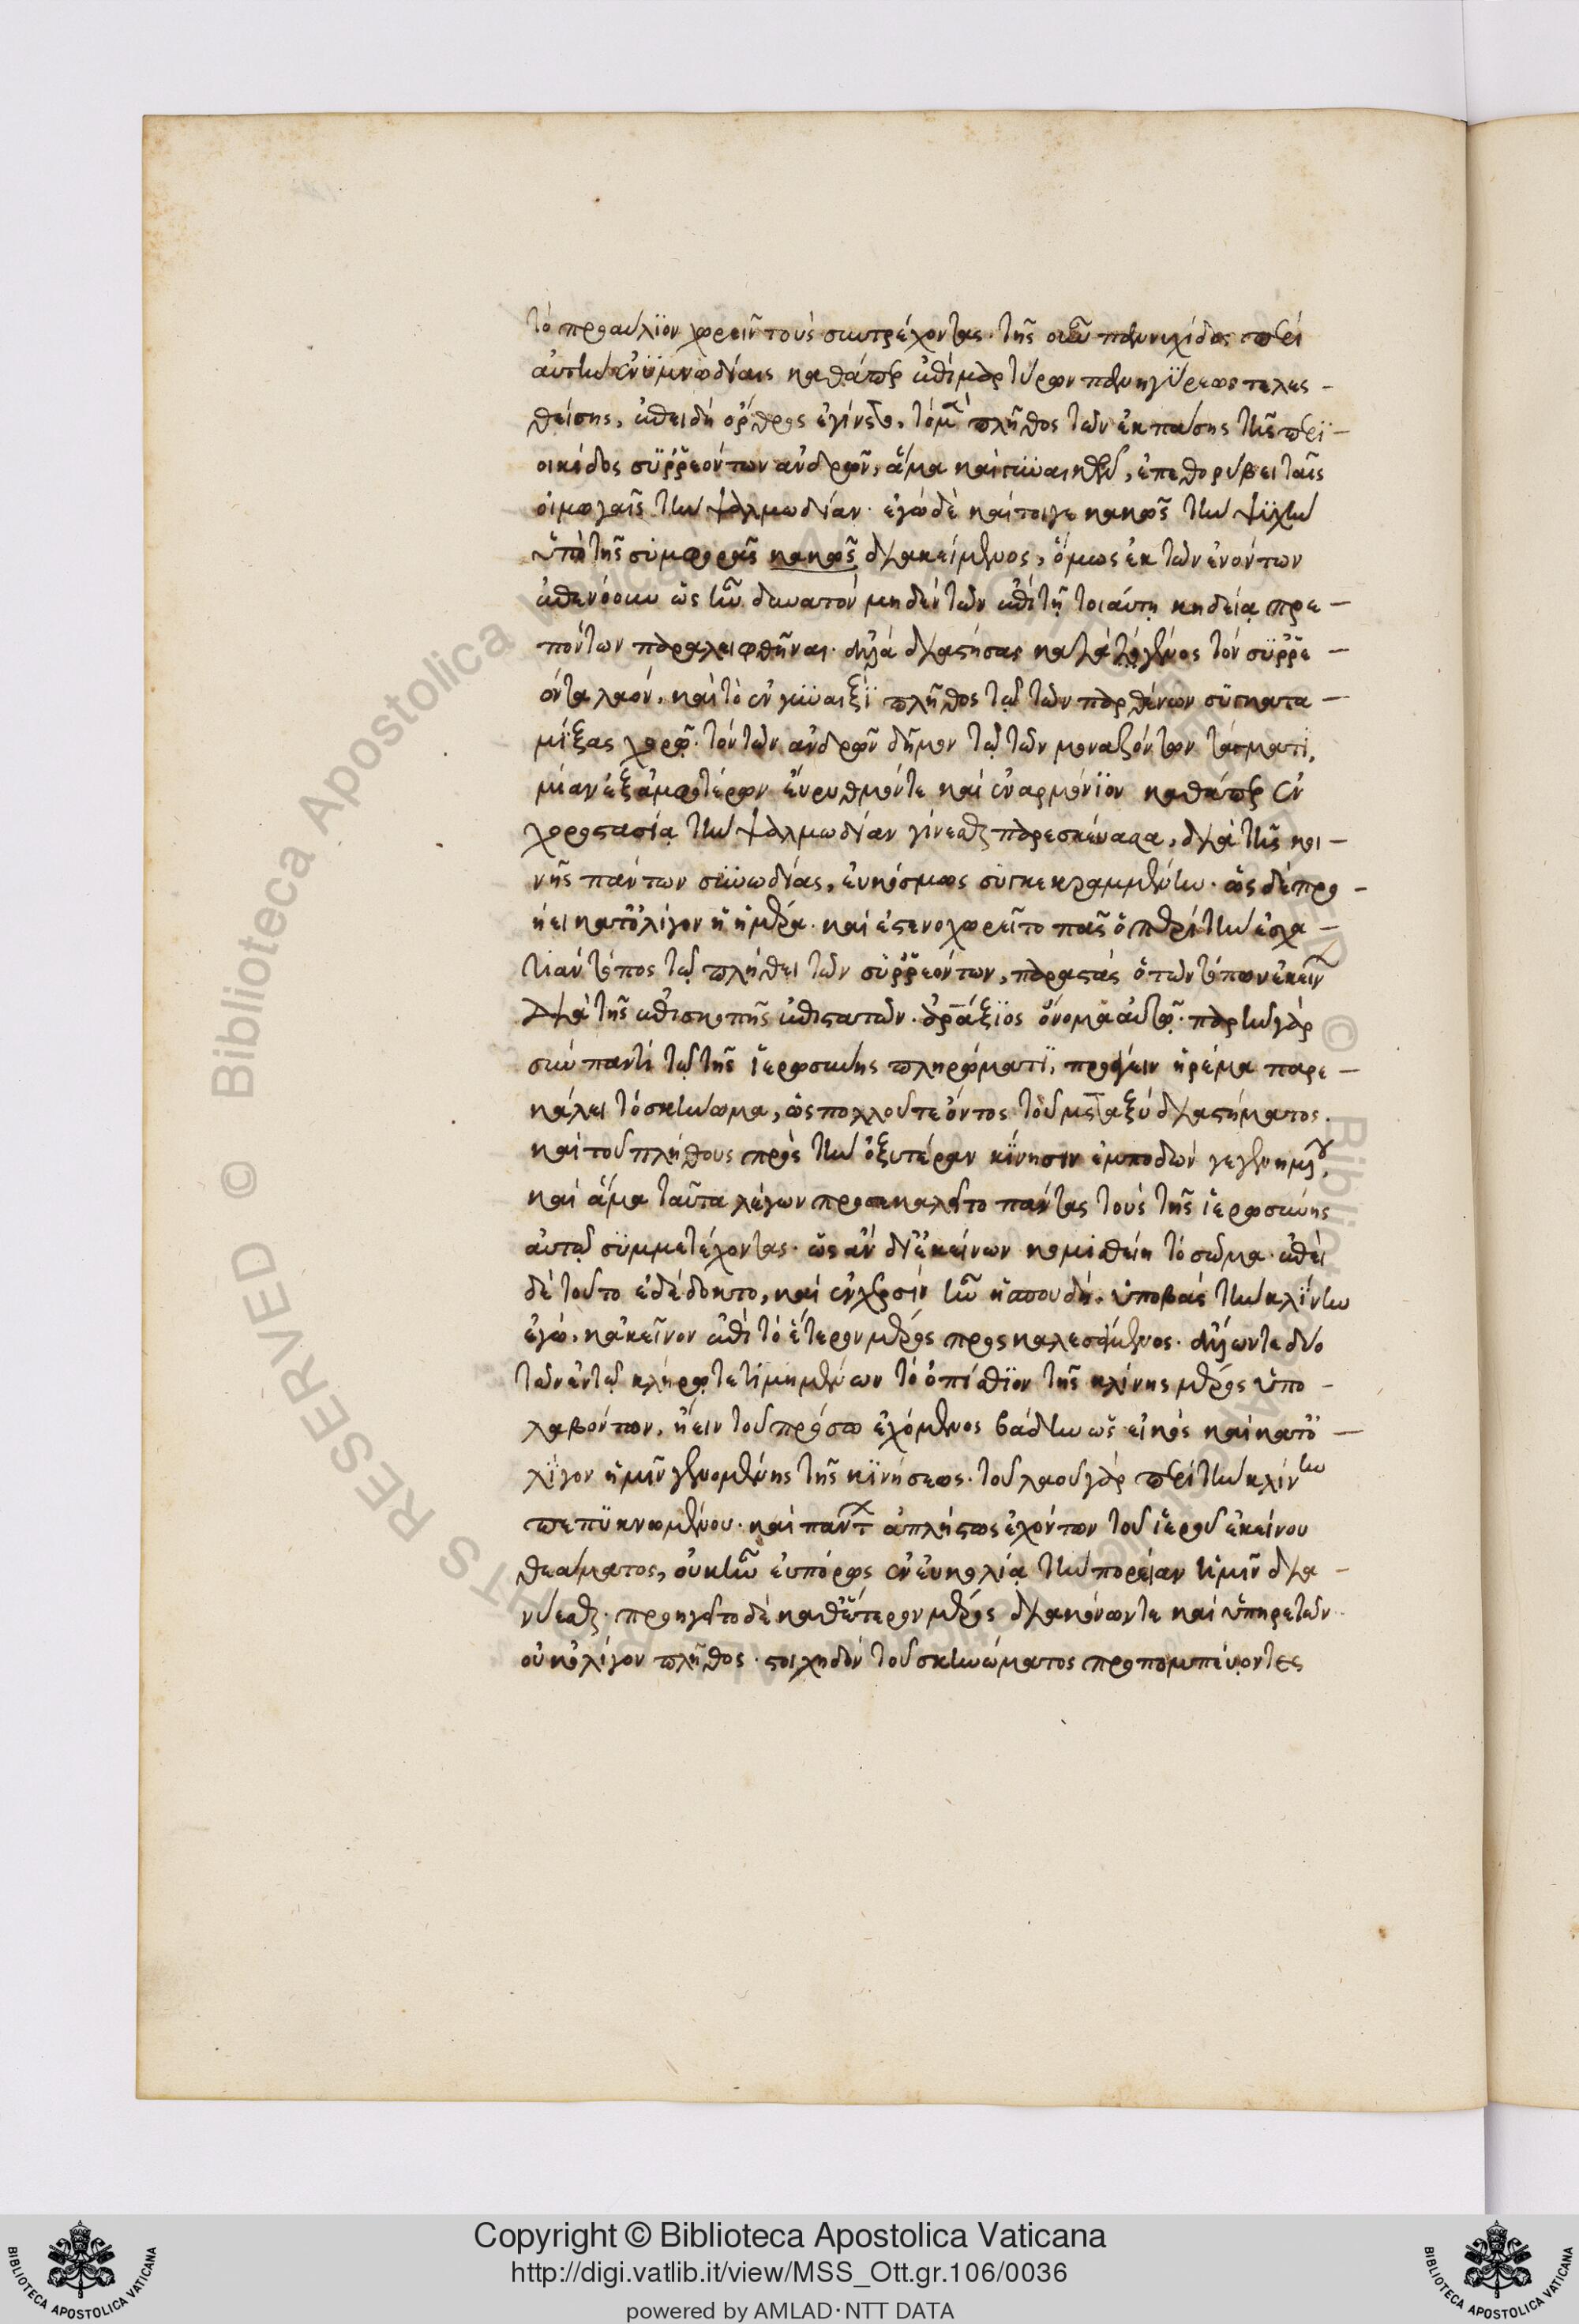 τὸ προαύλιον χωρεῖν τοὺς συντρέχοντας. τῆς οὖν παννυχίδος περὶ
αὐτὴν ἐν ὑμνωδίαις καθάπερ ἐπὶ μαρτύρων πανηγύρεως τελεσ-
θείσης, ἐπειδὴ ὄρθρος ἐγίνετο, τὸ μὲν πλῆθος τῶν ἐκ πάσης τῆς περι-
οικίδος συῤῥεόντων ἀνδρῶν, ἅμα καὶ γυναικῶν, ἐπεθορύβει ταῖς
οἰμωγαῖς τὴν ψαλμωδίαν. ἐγὼ δὲ καίτοιγε κακῶς τὴν ψυχὴν
ὑπὸ τῆς συμφορᾶς κακῶς διακείμενος, ὅμως ἐκ τῶν ἐνόντων
ἐπενόουν ὡς ἦν δυνατὸν μηδὲν τῶν ἐπὶ τῇ τοιαύτῃ κηδείᾳ πρε-
πόντων παραλειφθῆναι. ἀλλὰ διαστήσας κατὰ γένος τὸν συῤῥέ-
οντα λαόν, καὶ τὸ ἐν γυναιξὶ πλῆθος τῷ τῶν παρθένων συγκατα-
μίξας χορῷ. τὸν τῶν ἀνδρῶν δῆμον τῷ τῶν μοναζόντων τάγματι,
μίαν ἐξ ἀμφοτέρων εὔρυθμόν τε καὶ ἐναρμόνιον καθάπερ ἐν
χοροστασίᾳ τὴν ψαλμωδίαν γίνεσθαι παρεσκεύασα, διὰ τῆς κοι-
νῆς πάντων συνωδίας, εὐκόσμως συγκεκραμμένην. ὡς δὲ προ-
ήει κατ' ὀλίγον ἡ ἡμέρα. καὶ ἐστενοχωρεῖτο πᾶς ὁ περὶ τὴν ἐσχα-
τιὰν τόπος τῷ πλήθει τῶν συῤῥεόντων, παραστὰς ὁ τῶν τόπων ἐκείνων
διὰ τῆς ἐπισκοπῆς ἐπιστατῶν. ἀράξιος ὄνομα αὐτῷ. παρῆν γὰρ
σὺν παντὶ τῷ τῆς ἱερωσύνης πληρώματι, προάγειν ἠρέμα παρε-
κάλει τὸ σκήνωμα, ὡς πολλοῦ τε ὄντος τοῦ μεταξὺ διαστήματος.
καὶ τοῦ πλήθους πρὸς τὴν ὀξυτέραν κίνησιν ἐμποδὼν γεγενημένου,
καὶ ἅμα ταῦτα λέγων προσεκαλεῖτο πάντας τοὺς τῆς ἱερωσύνης
αὐτῷ συμμετέχοντας. ὡς ἂν δι' ἐκείνων κομισθείη τὸ σῶμα. ἐπεὶ
δὲ τοῦτο ἐδέδοκτο, καὶ ἐν χερσὶν ἦν ἡ σπουδή. ὑποβὰς τὴν κλίνην
ἐγώ, κἀκεῖνον ἐπὶ τὸ ἕτερον μέρος προσκαλεσάμενος. ἄλλων τε δύο
τῶν ἐν τῷ κλήρῳ τετιμημένων τὸ ὀπίσθιον τῆς κλίνης μέρος ὑπο-
λαβόντων, ᾔειν τοῦ πρόσω ἐχόμενος βάδην ὡς εἰκὸς καὶ κατ' ὀ-
λίγον ἡμῖν γενομένης τῆς κινήσεως. τοῦ λαοῦ γὰρ περὶ τὴν κλίνην
πεπυκνωμένου. καὶ πάντων ἀπλήστως ἐχόντων τοῦ ἱεροῦ ἐκείνου
θεάματος, οὐκ ἦν εὐπόρως ἐν εὐκολίᾳ τὴν πορείαν ἡμῖν δια-
νύεσθαι. προηγεῖτο δὲ καθ' ἕτερον μέρος διακόνων τε καὶ ὑπηρετῶν
οὐκ ὀλίγον πλῆθος. στοιχηδὸν τοῦ σκηνώματος προπομπεύοντες
Copyright © Biblioteca Apostolica Vaticana
http://digi.vatlib.it/view/MSS_Ott.gr.106/0036
powered by AMLAD·NTT DATA